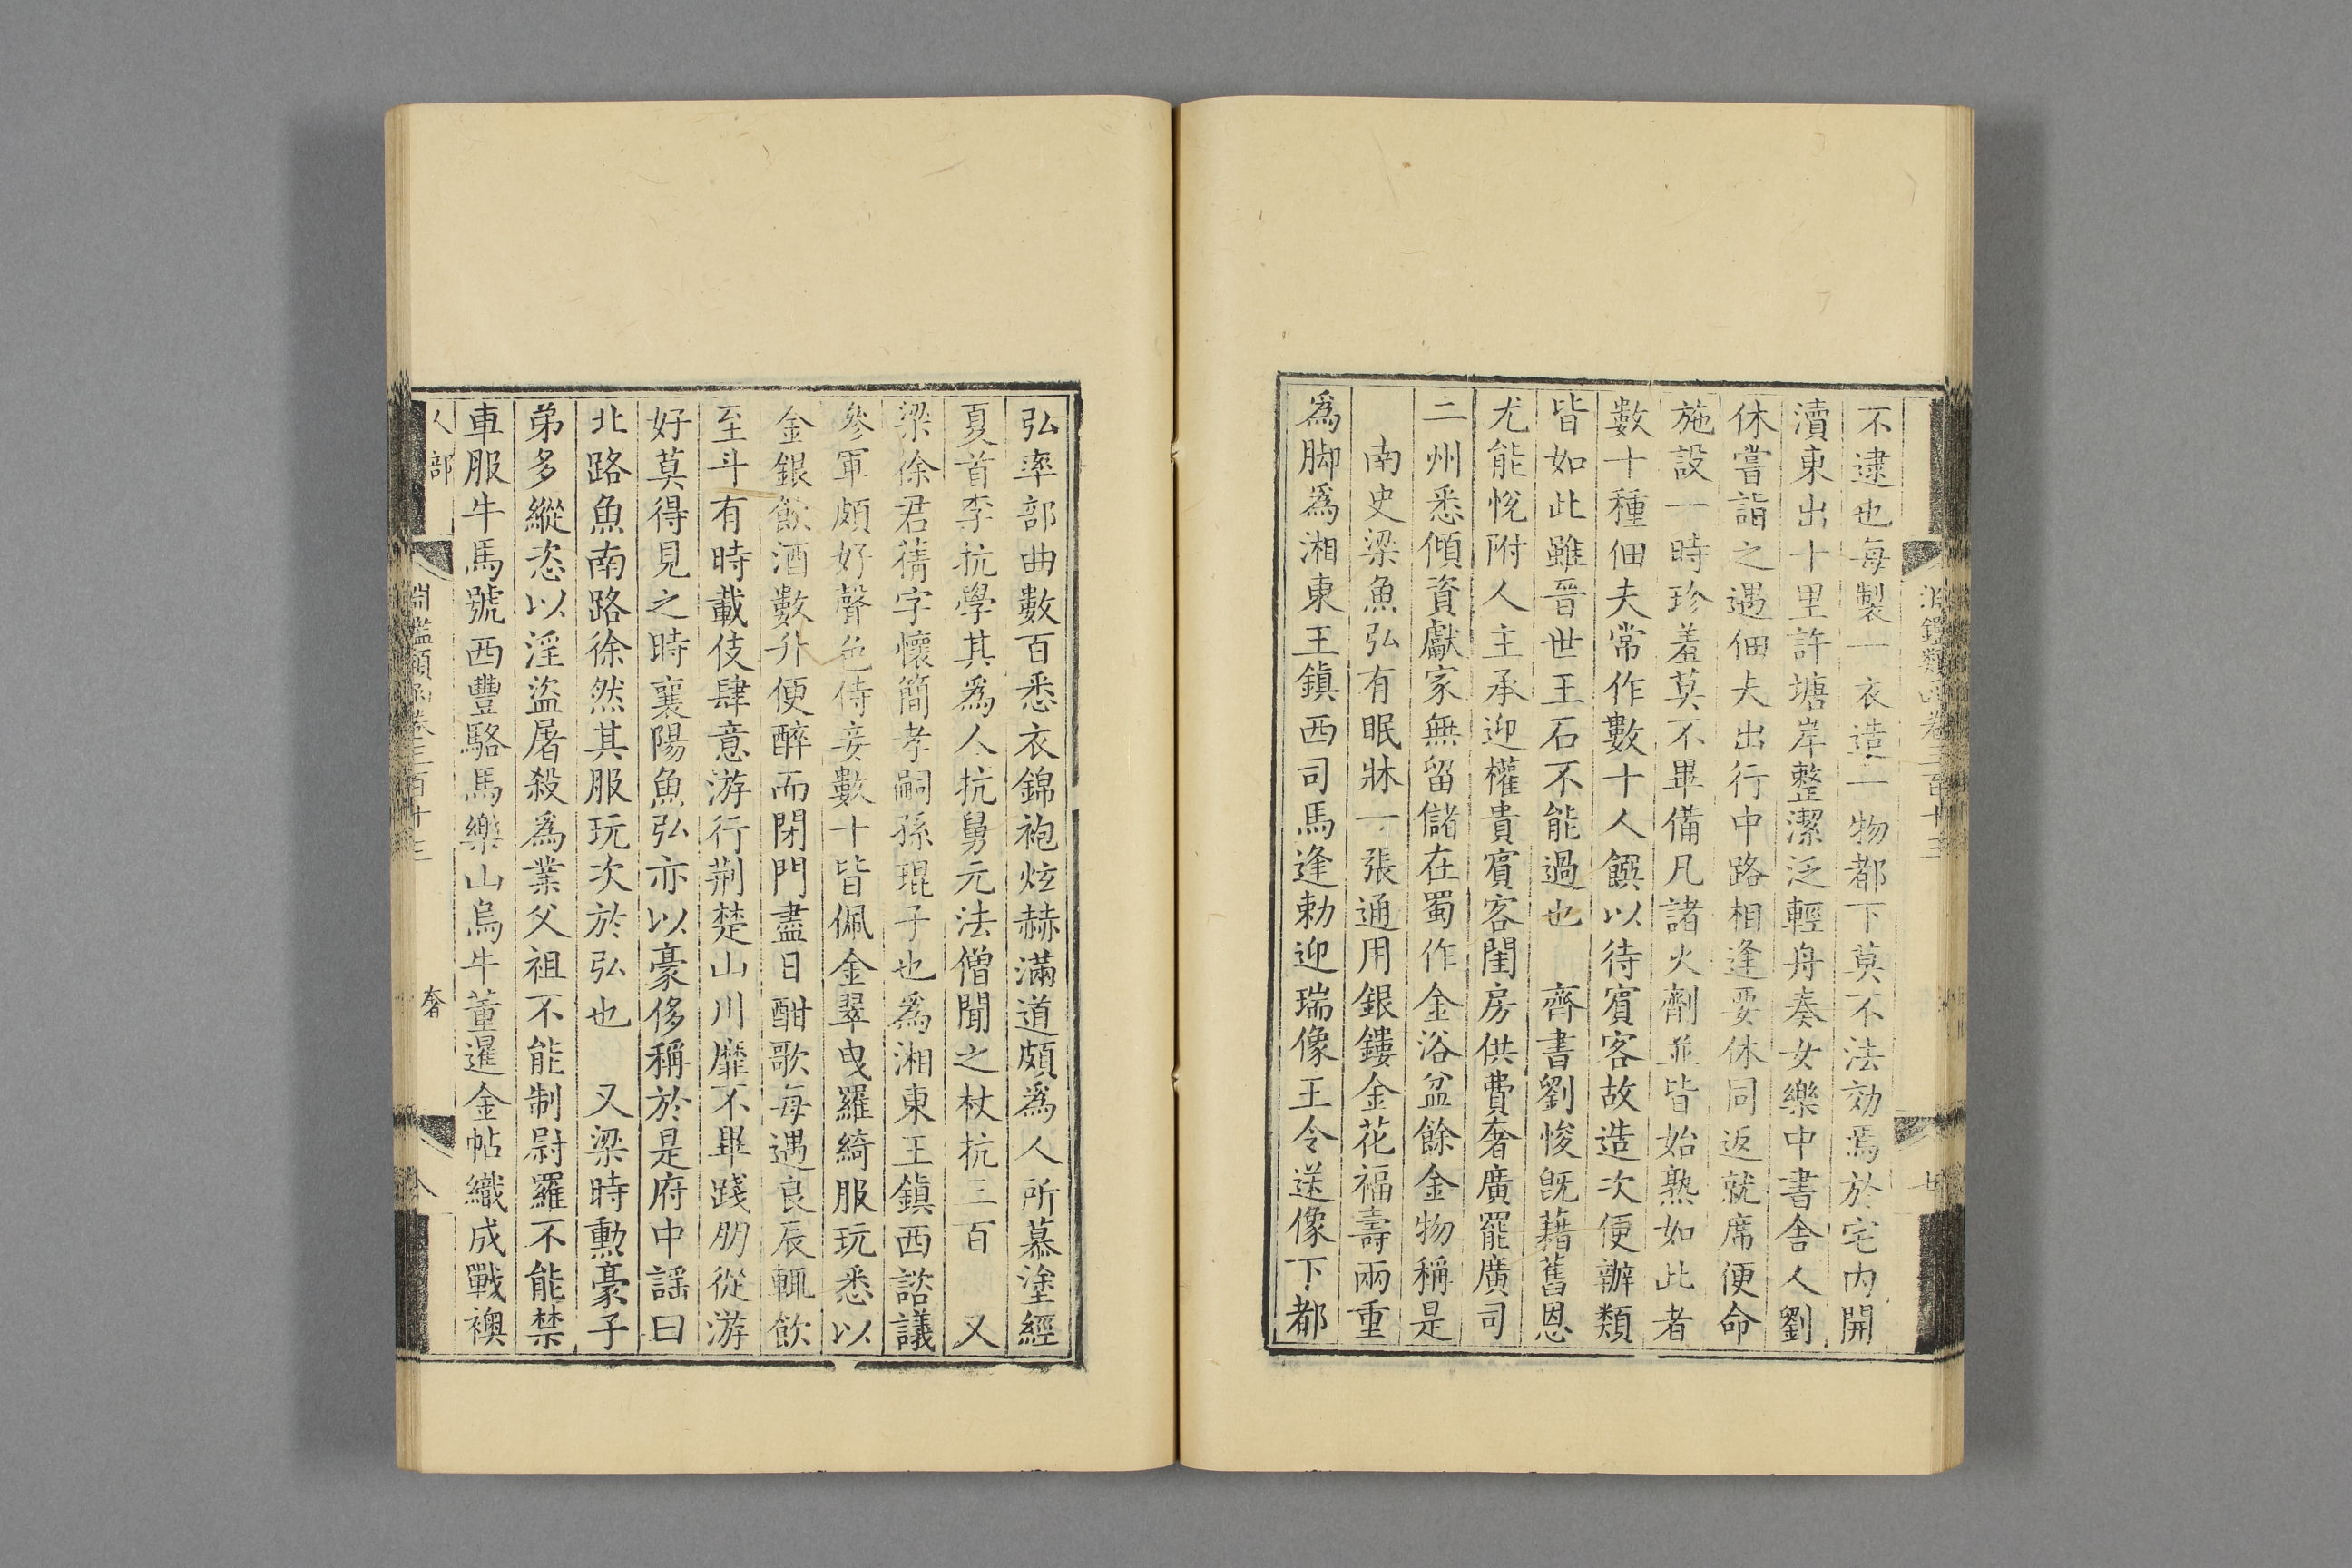 不逮也每製一衣造一物都下莫不法効焉於宅內開
瀆東出十里許塘岸整潔泛輕舟奏女樂中書舍人劉
休嘗詣之遇佃夫出行中路相逢要休同返就席便命
施設一時珍羞莫不畢備凡諸火劑並皆始熟如此者
數十種佃夫常作數十人饌以待賓客故造次便辦類
皆如此雖晉世王石不能過也　齊書劉悛既藉舊恩
尤能悅附人主承迎權貴賓客閨房供費奢廣罷廣司
二州悉傾資獻家無留儲在蜀作金浴盆餘金物稱是
南史梁魚弘有眠牀一張通用銀鏤金花福壽兩重
爲脚爲湘東王鎮西司馬逢勅迎瑞像王令送像下都
弘率部曲數百悉衣錦袍炫赫滿道頗爲人所慕塗經
夏首李抗學其爲人抗舅元法僧聞之杖抗三百　又
梁徐君蒨字懷簡孝嗣孫琨子也爲湘東王鎮西諮議
參軍頗好聲色侍妾數十皆佩金翠曳羅綺服玩悉以
金銀飲酒數升便醉而閉門盡日酣歌每遇良辰輒飲
至斗有時載伎肆意游行荆楚山川靡不畢踐朋從游
好莫得見之時襄陽魚弘亦以豪侈稱於是府中謡曰
北路魚南路徐然其服玩次於弘也　又梁時勲豪子
弟多縱恣以淫盜屠殺爲業父祖不能制尉羅不能禁
車服牛馬號西豐駱馬樂山烏牛董暹金帖織成戰襖
人部
淵鑑類函卷三百十三
奢
八